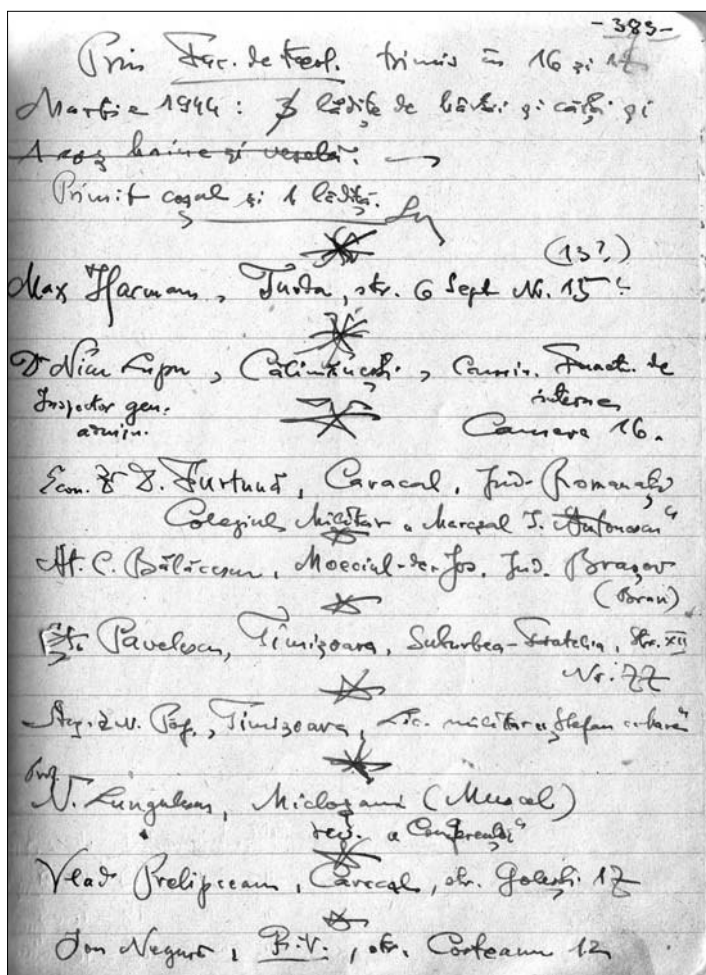 - 383 -
Prin Fac. de Teol. trimis în 16 și 17
Martie 1944: 3 lădițe de hârtii și cărți și
1 coș haine și veselă.
Primit coșul și 1 lădiță.
(13?)
Max Hacmann, Turda, str. 6 Sept Nr. 15?
Dr Nicu Lupu, Călimănești, Cămin. Funcț. de
Inspector gen. interne
admin. Camera 16.
Econ. Dr D. Furtună, Caracal, Jud. Romanați
Colegiul Militar "Mareșal I. Antonescu"
At. C. Bălăcescu, Moeciul-de-Jos, Jud. Brașov
(Bran)
Pavelescu, Timișoara, Suburbea-Fratelia, Str. XII
Nr. 77
Pop, Timișoara, Lic. militar "Ștefan cel Mare"
Prof.
N. Lungulescu, Micloșani (Muscel)
rev. "Conferențe"
Vlad Prelipceanu, Caracal, str. Golești 17
Ion Negură, R.V., str. Corteanu 12